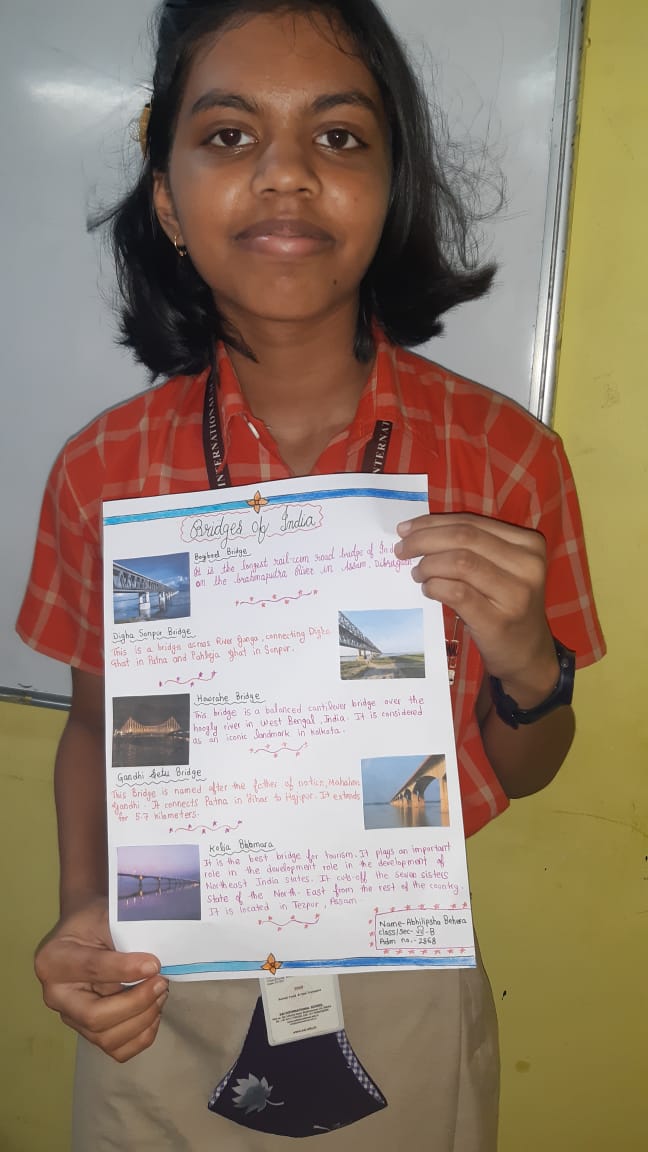 INTERNATIONAL
INTERNAT
Bridges of India
Bogibeel Bridge
It is the longest rail-cum road bridge of
on the brahmaputra River in Assam, Dibrugarh
Digha Sonpur Bridge
This is a bridge across River Ganga, connecting Digha
Ghat in Patna and Pahleja Ghat in Sonpur.
Hoorahe Bridge
This bridge is a balanced cantilever bridge over the
hoogly river in West Bengal, India. It is considered
as an iconic landmark in kolkata.
Gandhi Setu Bridge
This Bridge is named after the father of nation, Mahatma
Gandhi. It connects Patna in Bihar to Hajipur. It extends
for 5.7 kilometers.
Kolia Bhbmara
It is the best bridge for tourism. It plays an important
role in the development role in the development of
Northeast India states. It cuts-off the seven sisters
State of the North-East from the rest of the country.
It is located in Tezpur, Assam
Name- Abhilipsha Behera
class/sec- VII-B
Adm no.- 2868
SAI INTERNATIONAL SCHOOL